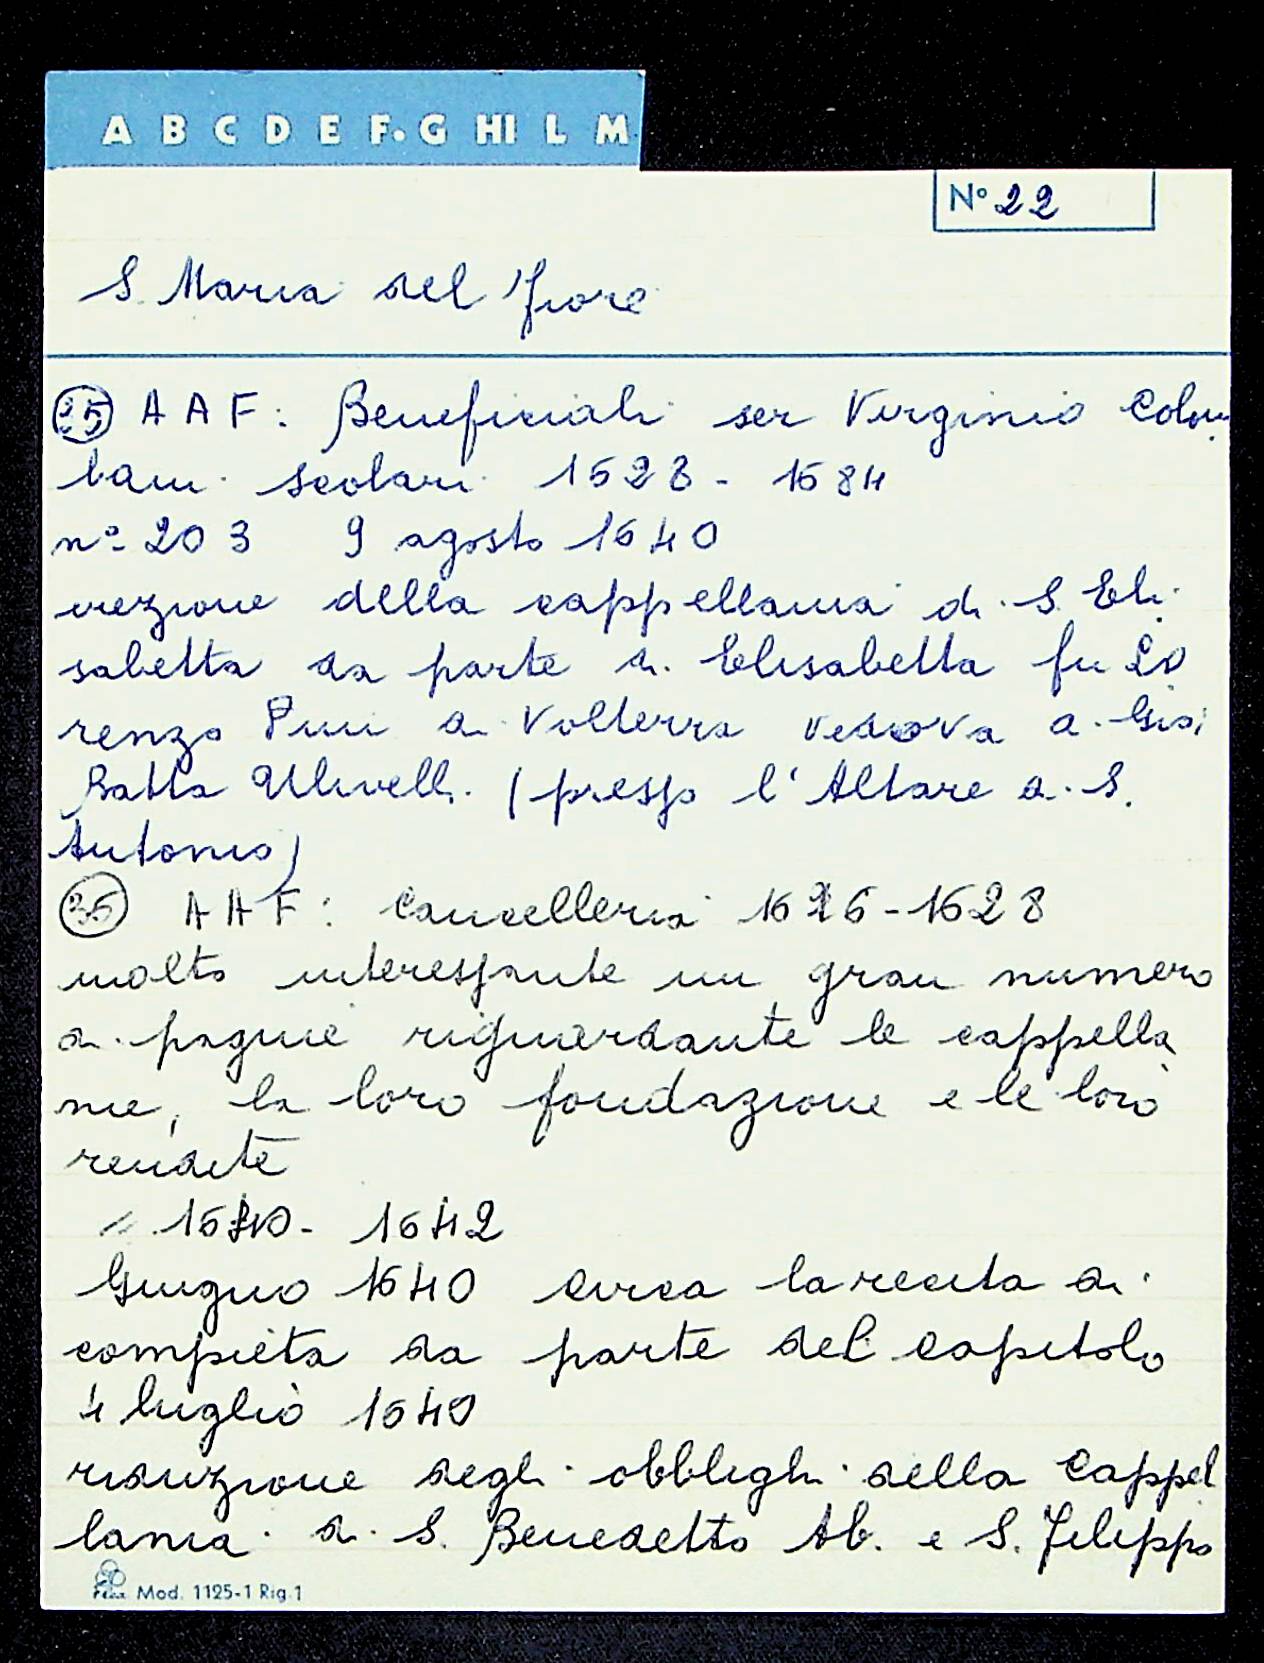 A B C D E F. G HI L M
N° 22
S. Maria del Fiore
25 AAF: Beneficiali ser Virginio Colom
bani scolari 1628 - 1684
n° 203 9 agosto 1640
erezione della cappellania di S. Eli
sabetta da parte di Elisabetta fu Lo
renzo Pini di Volterra vedova di Gio.
Batta Ulivelli (presso l'Altare di S.
Antonio)
26 AAF: Cancelleria 1626-1628
molto interessante un gran numero
di pagine riguardante le cappella
nie, la loro fondazione e le loro
rendite
" 1640 - 1642
Giugno 1640 circa la recita di
compieta da parte del capitolo
4 luglio 1640
riduzione degli obblighi della Cappel
lania di S. Benedetto Ab. e S. Filippo
Mod. 1125-1 Rig.1